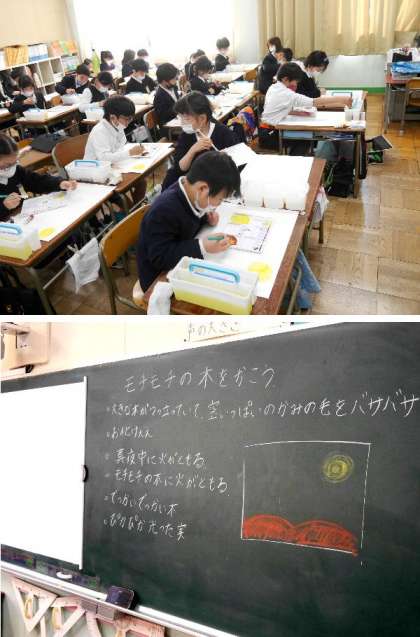 声の大きさ
モチモチの木をかこう
。大きな木がつっ立っていて、空いっぱいのかみの毛をバサバサ
。おばけぇぇ
。真夜中に火がともる。
。モチモチの木に火がともる
。でっかいでっかい木
。ぴかぴか光った実